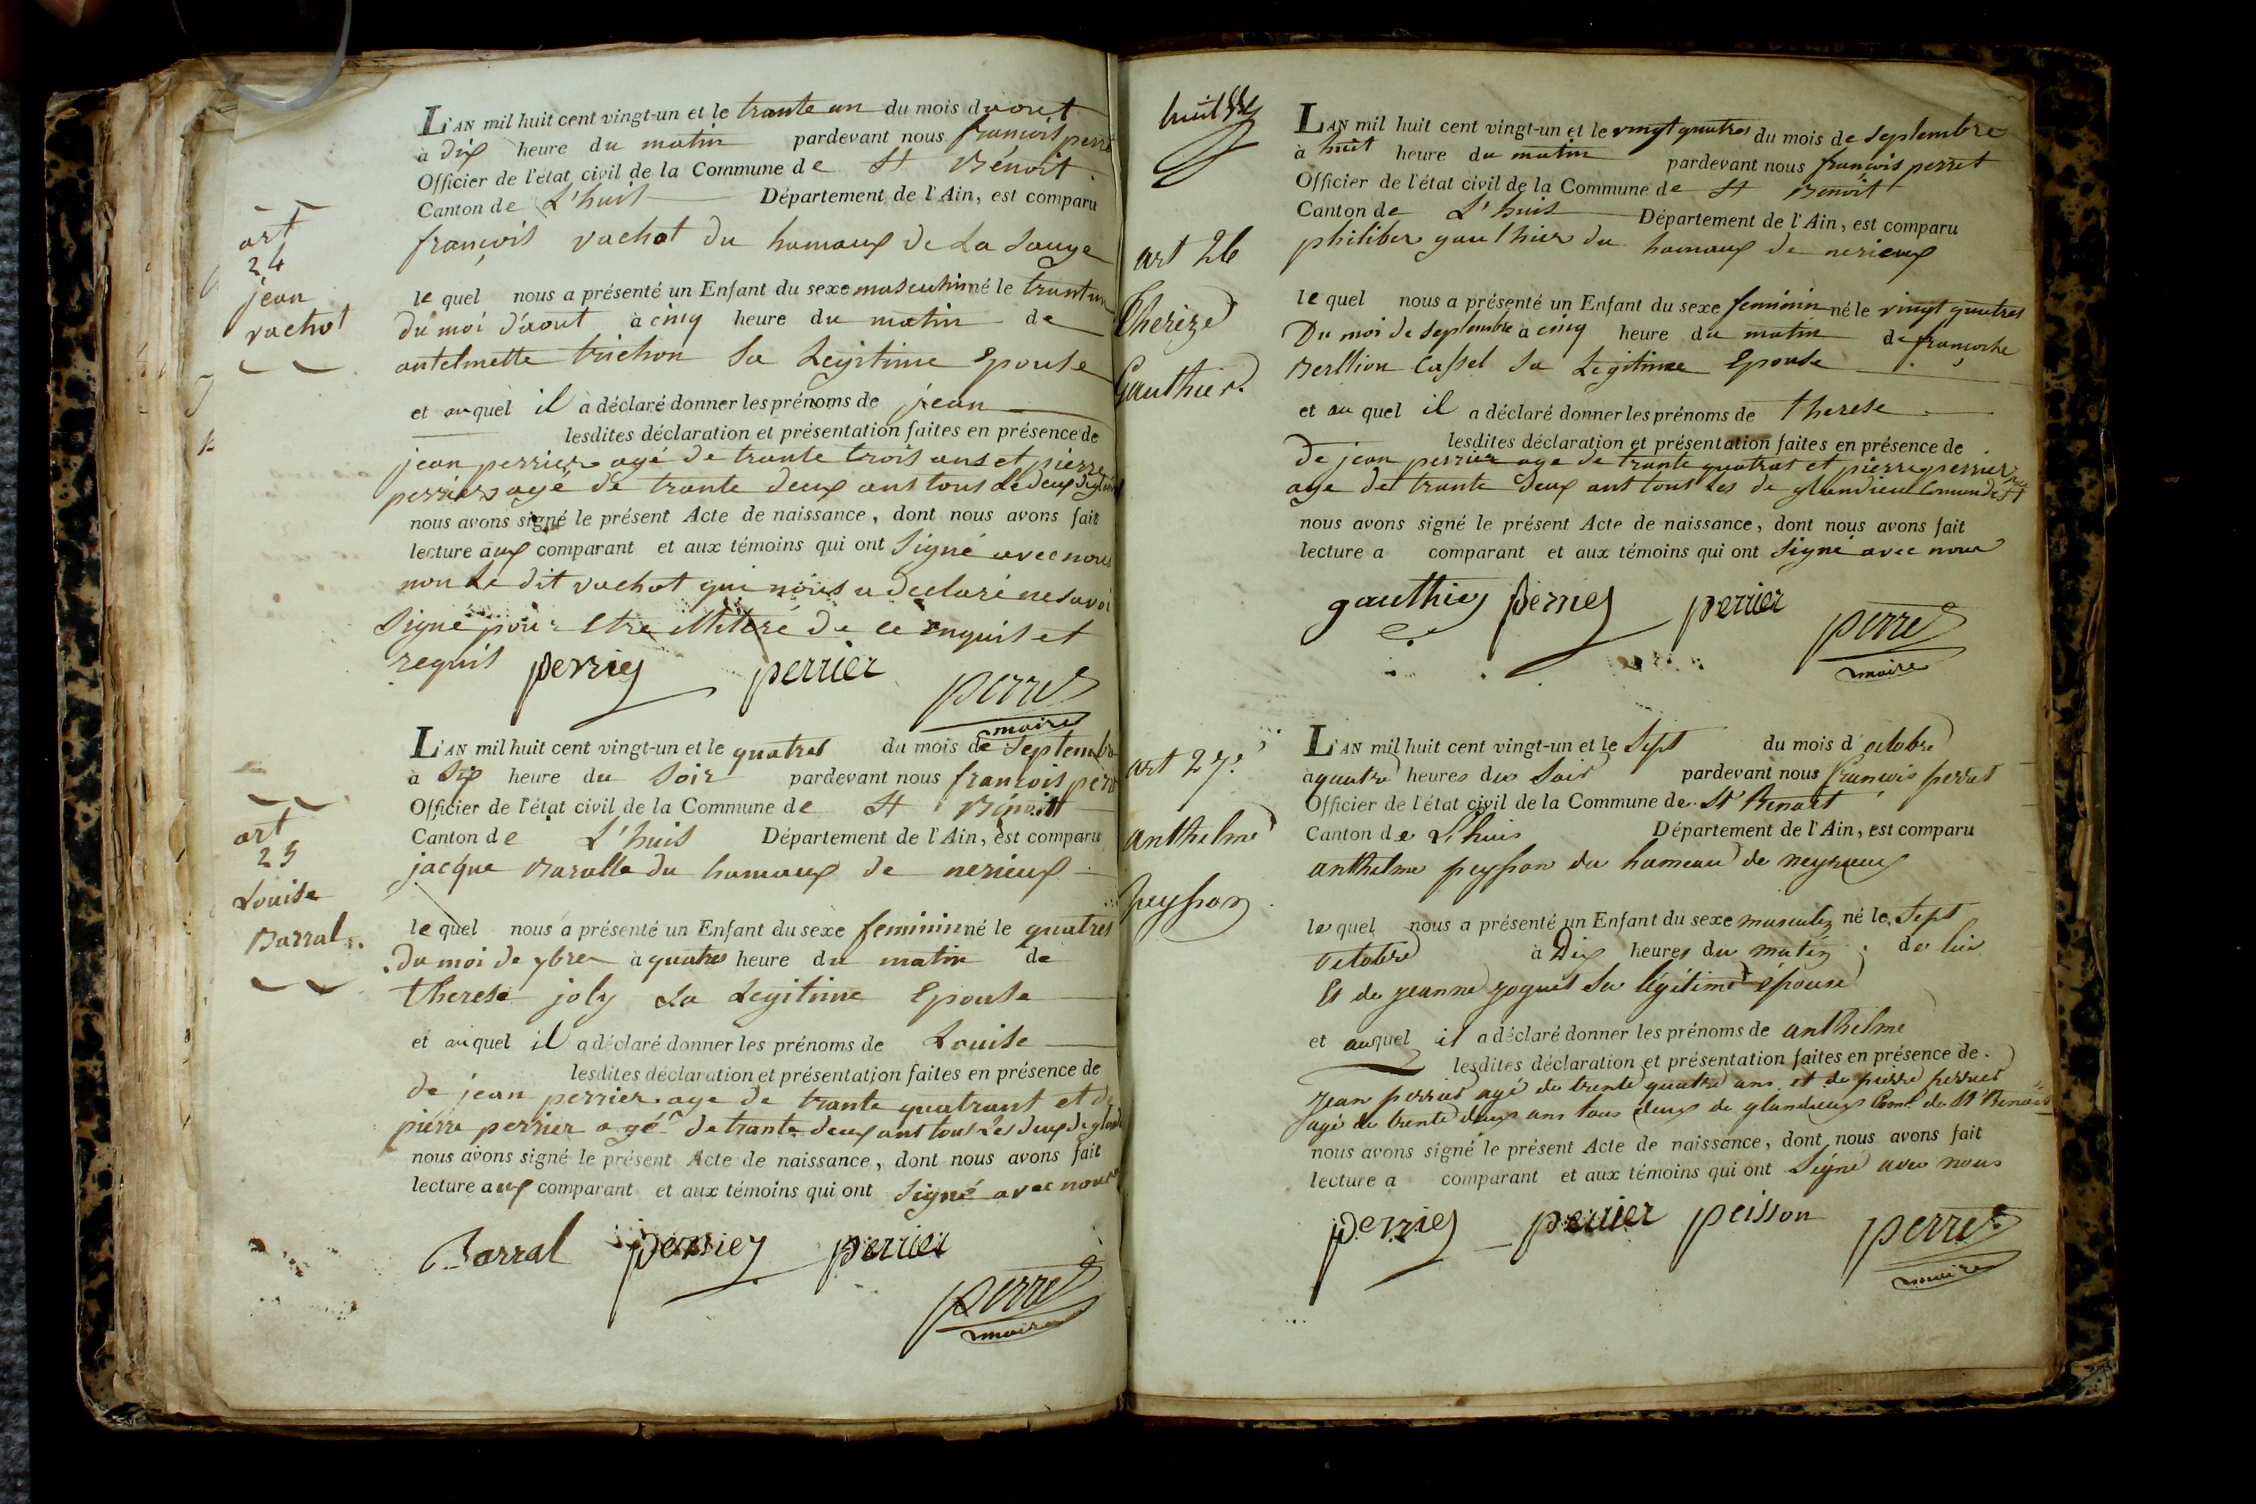 L'AN mil huit cent vingt-un et le trante un du mois d'aout
à dix heure du matin pardevant nous francois perret
Officier de l'état civil de la Commune de St Bénoit
Canton de L'huis Département de l'Ain, est comparu
françois vachot du hamaux de La Sauge
art
24
jean
vachot
le quel nous a présenté un Enfant du sexe masculin né le trantun
du moi d'aout à cinq heure du matin de
antelmette trichon Sa Legitime Epouse
et auquel il a déclaré donner les prénoms de jean
lesdites déclaration et présentation faites en présence de
jean perrier agé de trante trois ans et pierre
perrier agé de trante deux ant tous Le deux de
nous avons signé le présent Acte de naissance, dont nous avons fait
lecture aux comparant et aux témoins qui ont Signé avec nous
non Le dit vachot qui nous a declaré ne Savoi
Signé pour Etre illiteré de ce enquis et
requis perrier perrier
perret
maire
L'AN mil huit cent vingt-un et le quatres du mois de Septembre
à Six heure du Soir pardevant nous françois perret
Officier de l'état civil de la Commune de St Bénoitt
Canton de L'huis Département de l'Ain, est comparu
jacque Baralle du hamaux de nerieux
art
25
Louise
Barral
le quel nous a présenté un Enfant du sexe feminin né le quatres
du moi de 7bre à quatres heure du matin de
therese joly La Legitime Epouse
et auquel il a déclaré donner les prénoms de Louise
lesdites déclaration et présentation faites en présence de
de jean perrier age de trante quatrant et de
pierre perrier agé de trante deux ant tous Les deux de
nous avons signé le présent Acte de naissance, dont nous avons fait
lecture aux comparant et aux témoins qui ont Signé avec nous
Barral perrier perrier
perret
maire
huit
L'AN mil huit cent vingt-un et le vingt quatres du mois de Septembre
à huit heure du matin pardevant nous françois perret
Officier de l'état civil de la Commune de St Benoit
Canton de L'huis Département de l'Ain, est comparu
philiber gaulhier du hamaux de nerieux
art 26
Therize
Gauthier.
le quel nous a présenté un Enfant du sexe feminin né le vingt quatres
Du moi de Septembre à cinq heure du matin de francoise
Berllion Cassel Sa Legitime Epouse
et au quel il a déclaré donner les prénoms de therese
lesdites déclaration et présentation faites en présence de
de jean perrier age de trante quatrat et pierre perrier
age de trante deux ant tout Les de glandieu Comun de St
nous avons signé le présent Acte de naissance, dont nous avons fait
lecture a comparant et aux témoins qui ont Signé avec nous
gauthier perrier perrier
perret
maire
L'AN mil huit cent vingt-un et le Sept du mois d'octobre
à quatre heures du Soir pardevant nous françois perret
Officier de l'état civil de la Commune de St Benoit
Canton de L'huis Département de l'Ain, est comparu
anthelme peysson du hameau de neyrieux
art 27.
anthelme
peysson
le quel nous a présenté un Enfant du sexe masculin né le Sept
Octobre à Dix heures du matin de lui
Et de jeanne joguet Sa légitime épouse
et auquel il a déclaré donner les prénoms de anthelme
lesdites déclaration et présentation faites en présence de
jean perrier agé de trente quatre ans et de pierre perrier
agé de trente deux ans tous deux de glandieux Comne de St Benoit
nous avons signé le présent Acte de naissance, dont nous avons fait
lecture a comparant et aux témoins qui ont Signé avec nous
perrier perrier peisson perret
maire